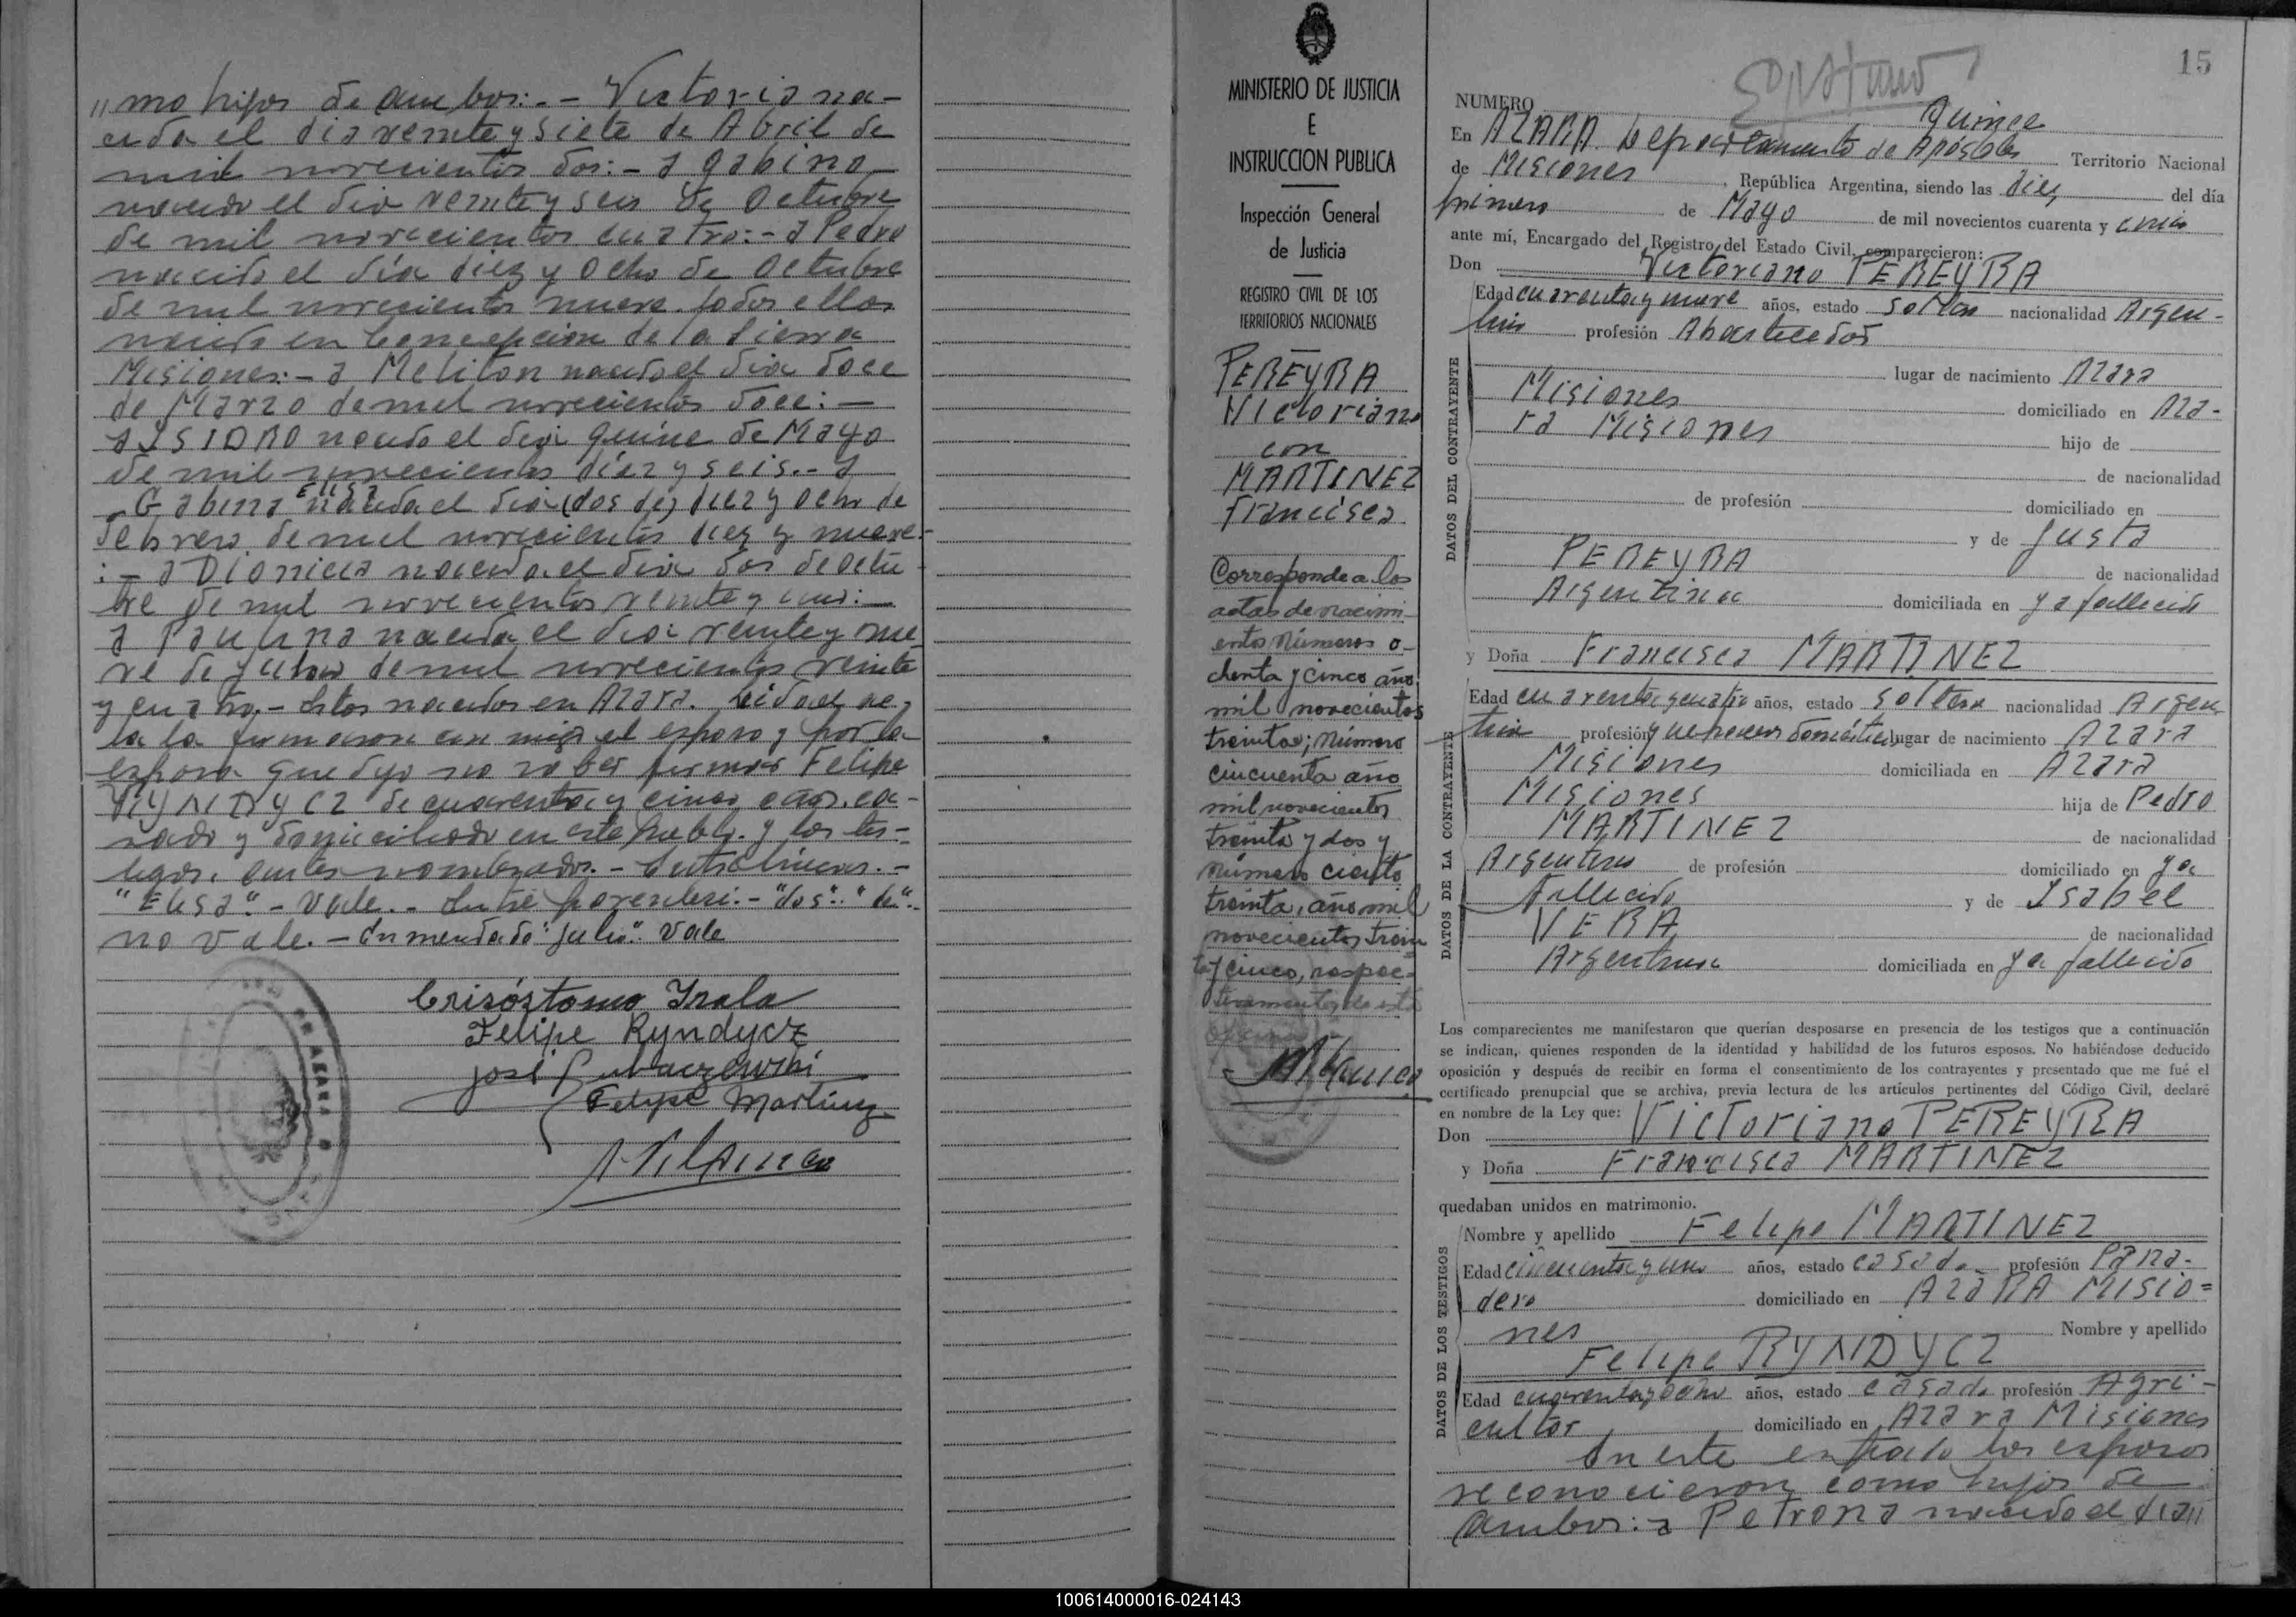 "mo hijos de ambos:.- Victoria na-
cida el dia veinte y siete de Abril de
mil novecientos dos:- a Gabino
nacido el dia veinte y seis de Octubre
de mil novecientos cuatro:- a Pedro
nacido el día diez y ocho de Octubre
de mil novecientos nueve. todos ellos
nacido en Concepcion de la Sierra
Misiones:- a Meliton nacido el dia doce
de Marzo de mil novecientos doce:-
a ISIDRO nacido el dia quince de Mayo
de mil novecientos diez y seis.- a
Elisa
Gabina nacida el dia (dos de) diez y ocho de
Febrero de mil novecientos diez y nueve.-
:- a Dionicia nacida el dia dos de octu
bre de mil novecientos veinte y uno:-
a Paulina nacida el dia veinte y nue
ve de Julio de mil novecientos veinte
y cuatro.- Estos nacidos en Azara. Leida el ac-
ta la firmaron con migo el esposo y por la
esposa que dijo no saber firmar Felipe
RYNDYCZ de cuarenta y cinco años, ca-
sado y domiciliado en este pueblo. y los tes-
tigos, antes nombrados.- Entrelineas.-
"Elisa".- Vale.- Entre parentesi:- "dos": "de".
no vale.- Enmendado: "Julio": Vale
Crisóstomo Irala
Felipe Ryndycz
José
Felipe Martinez
AZARA
MINISTERIO DE JUSTICIA
E
INSTRUCCION PUBLICA
Inspección General
de Justicia
REGISTRO CIVIL DE LOS
TERRITORIOS NACIONALES
PEREYRA
Victoriano
con
MARTINEZ
Francisca
Corresponde a las
actas de nacimi-
ento números o-
chenta y cinco año
mil novecientos
treinta; número
cincuenta año
mil novecientos
treinta y dos y
número ciento
treinta, año mil
novecientos trein
ta y cinco, respec-
tivamente, de esta
oficina.
15
NUMERO Quince
En AZARA Departamento de Apóstoles Territorio Nacional
de Misiones, República Argentina, siendo las diez del día
primero de Mayo de mil novecientos cuarenta y cinco
ante mí, Encargado del Registro del Estado Civil, comparecieron:
Don Victoriano PEREYRA
DATOS DEL CONTRAYENTE
Edad cuarenta y nueve años, estado soltero nacionalidad Argen-
tino profesión Abastecedor
lugar de nacimiento Azara
Misiones domiciliado en Aza-
ra Misiones hijo de
de nacionalidad
de profesión domiciliado en
y de Justa
PEREYRA de nacionalidad
Argentina domiciliada en ya fallecida
y Doña Francisca MARTINEZ
DATOS DE LA CONTRAYENTE
Edad cuarenta y cuatro años, estado soltera nacionalidad Argen
tina profesión quehaceres domésticos lugar de nacimiento Azara
Misiones domiciliada en Azara
Misiones hija de Pedro
MARTINEZ de nacionalidad
Argentino de profesión domiciliado en ya
fallecido y de Isabel
VERA de nacionalidad
Argentina domiciliada en ya fallecida
Los comparecientes me manifestaron que querían desposarse en presencia de los testigos que a continuación
se indican, quienes responden de la identidad y habilidad de los futuros esposos. No habiéndose deducido
oposición y después de recibir en forma el consentimiento de los contrayentes y presentado que me fué el
certificado prenupcial que se archiva, previa lectura de los artículos pertinentes del Código Civil, declaré
en nombre de la Ley que:
Don Victoriano PEREYRA
y Doña Francisca MARTINEZ
quedaban unidos en matrimonio.
DATOS DE LOS TESTIGOS
Nombre y apellido Felipe MARTINEZ
Edad cincuenta y uno años, estado casado profesión Pana-
dero domiciliado en AZARA MISIO=
nes Nombre y apellido
Felipe RYNDYCZ
Edad cuarenta y ocho años, estado casado profesión Agri-
cultor domiciliado en Azara Misiones
En este estado los esposos
reconocieron como hijos de
ambos: a Petrona nacida el dia"
100614000016-024143